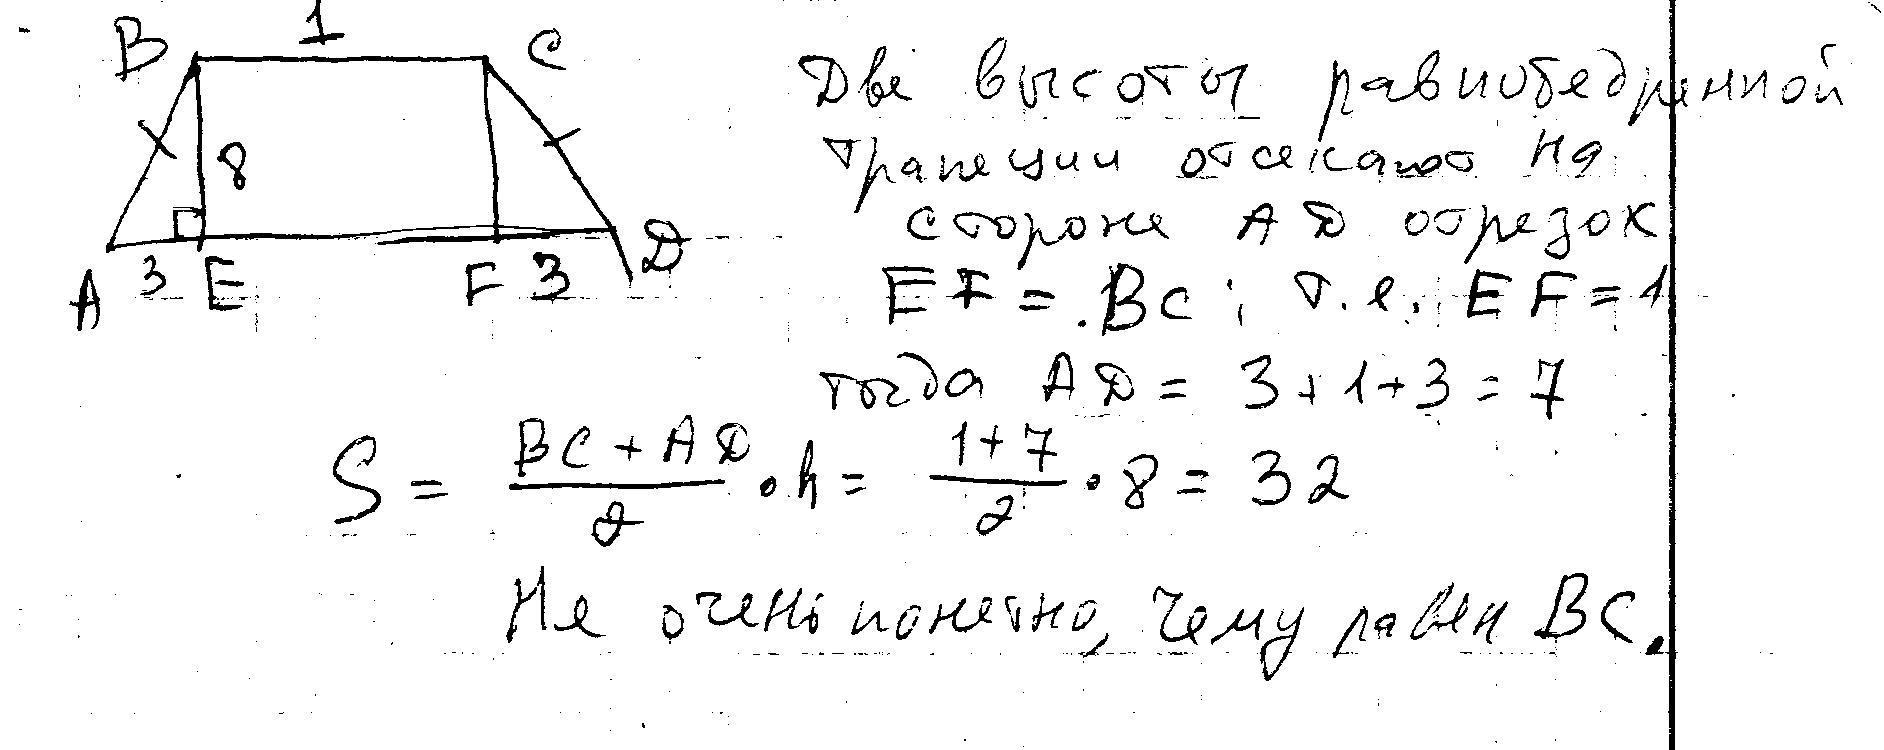 1
B
C
8
A 3 E F 3 D
Две высоты равнобедренной
трапеции отсекают на
стороне AD отрезок
EF = BC, т.е. EF = 1
тогда AD = 3 + 1 + 3 = 7
S = (BC + AD)/2 · h = (1 + 7)/2 · 8 = 32
Не очень понетно, чему равен BC.